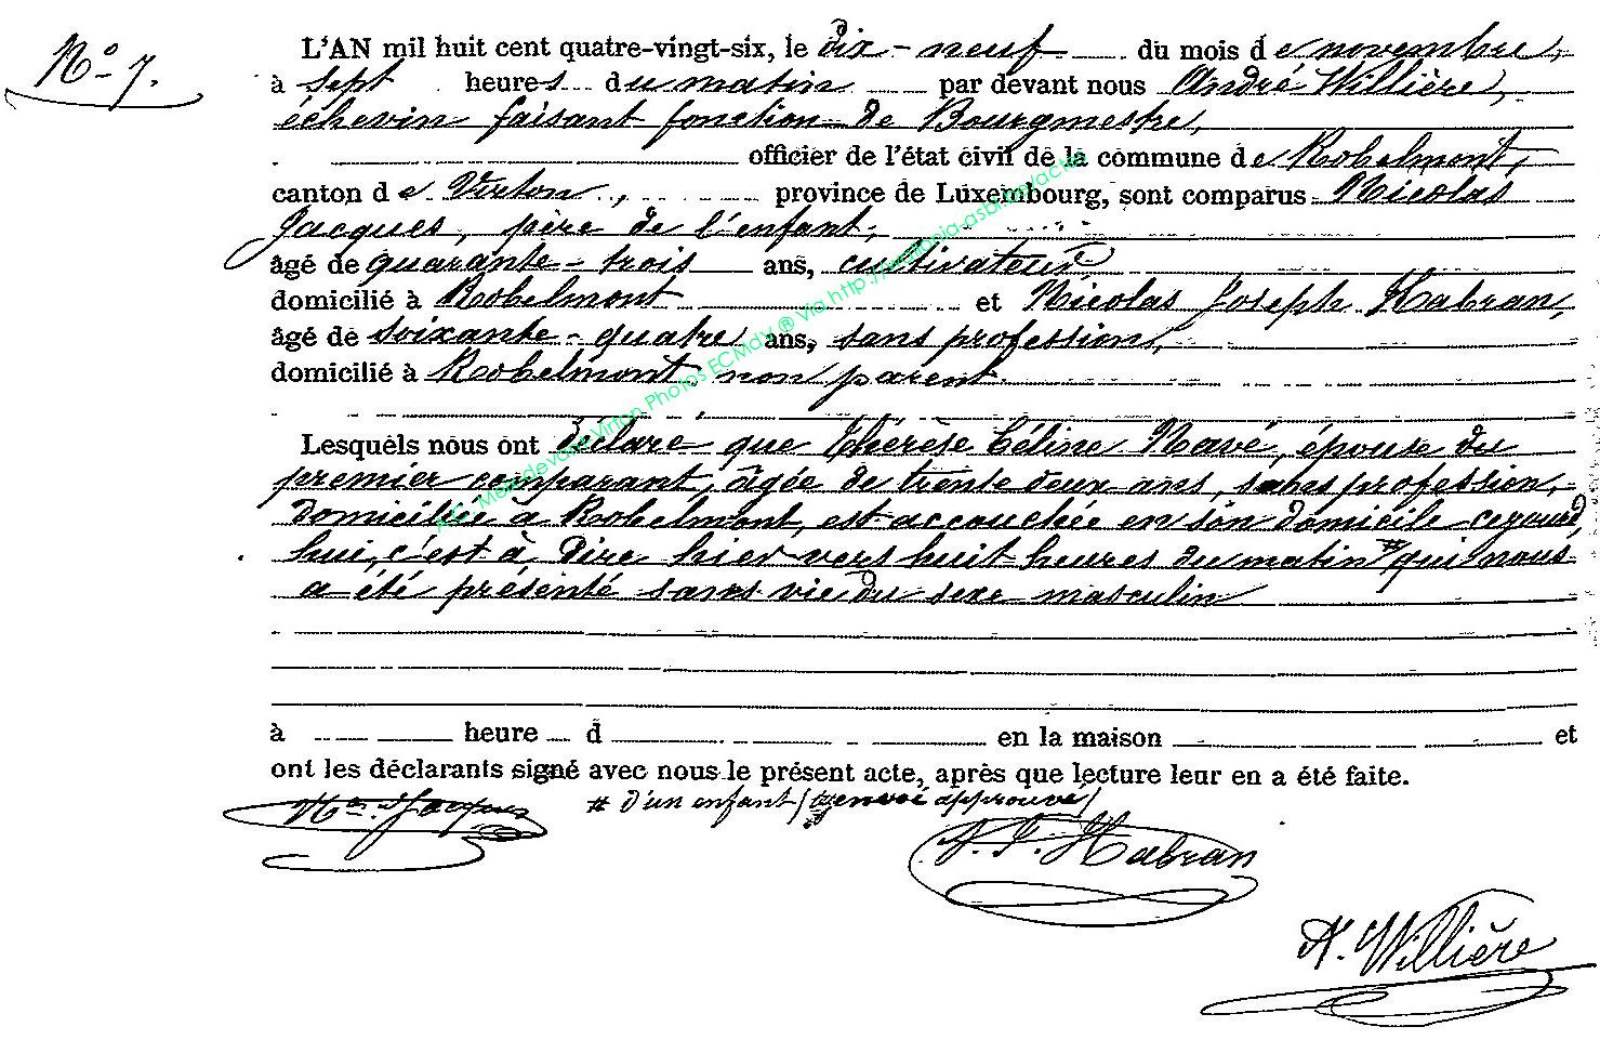 N° 7.
L'AN mil huit cent quatre-vingt-six, le dix-neuf du mois de novembre,
à sept heures du matin par devant nous André Willière,
échevin faisant fonction de Bourgmestre,
officier de l'état civil de la commune de Robelmont,
canton de Virton, province de Luxembourg, sont comparus Nicolas
Jacques, père de l'enfant,
âgé de quarante-trois ans, cultivateur,
domicilié à Robelmont et Nicolas Joseph Habran,
âgé de soixante-quatre ans, sans profession,
domicilié à Robelmont, non parent.
Lesquels nous ont déclaré que Thérèse Céline Navé, épouse du
premier comparant, âgée de trente deux ans, sans profession,
domiciliée à Robelmont, est accouchée en son domicile cejourd'
hui, c'est à dire hier vers huit heures du matin # qui nous
a été présenté sans vie du sexe masculin
à heure d en la maison et
ont les déclarants signé avec nous le présent acte, après que lecture leur en a été faite.
Nas. Jacques # d'un enfant (renvoi approuvé)
N. J. Habran
A. Willière
Meix-devant-Virton Photos ECMdV ® via http://